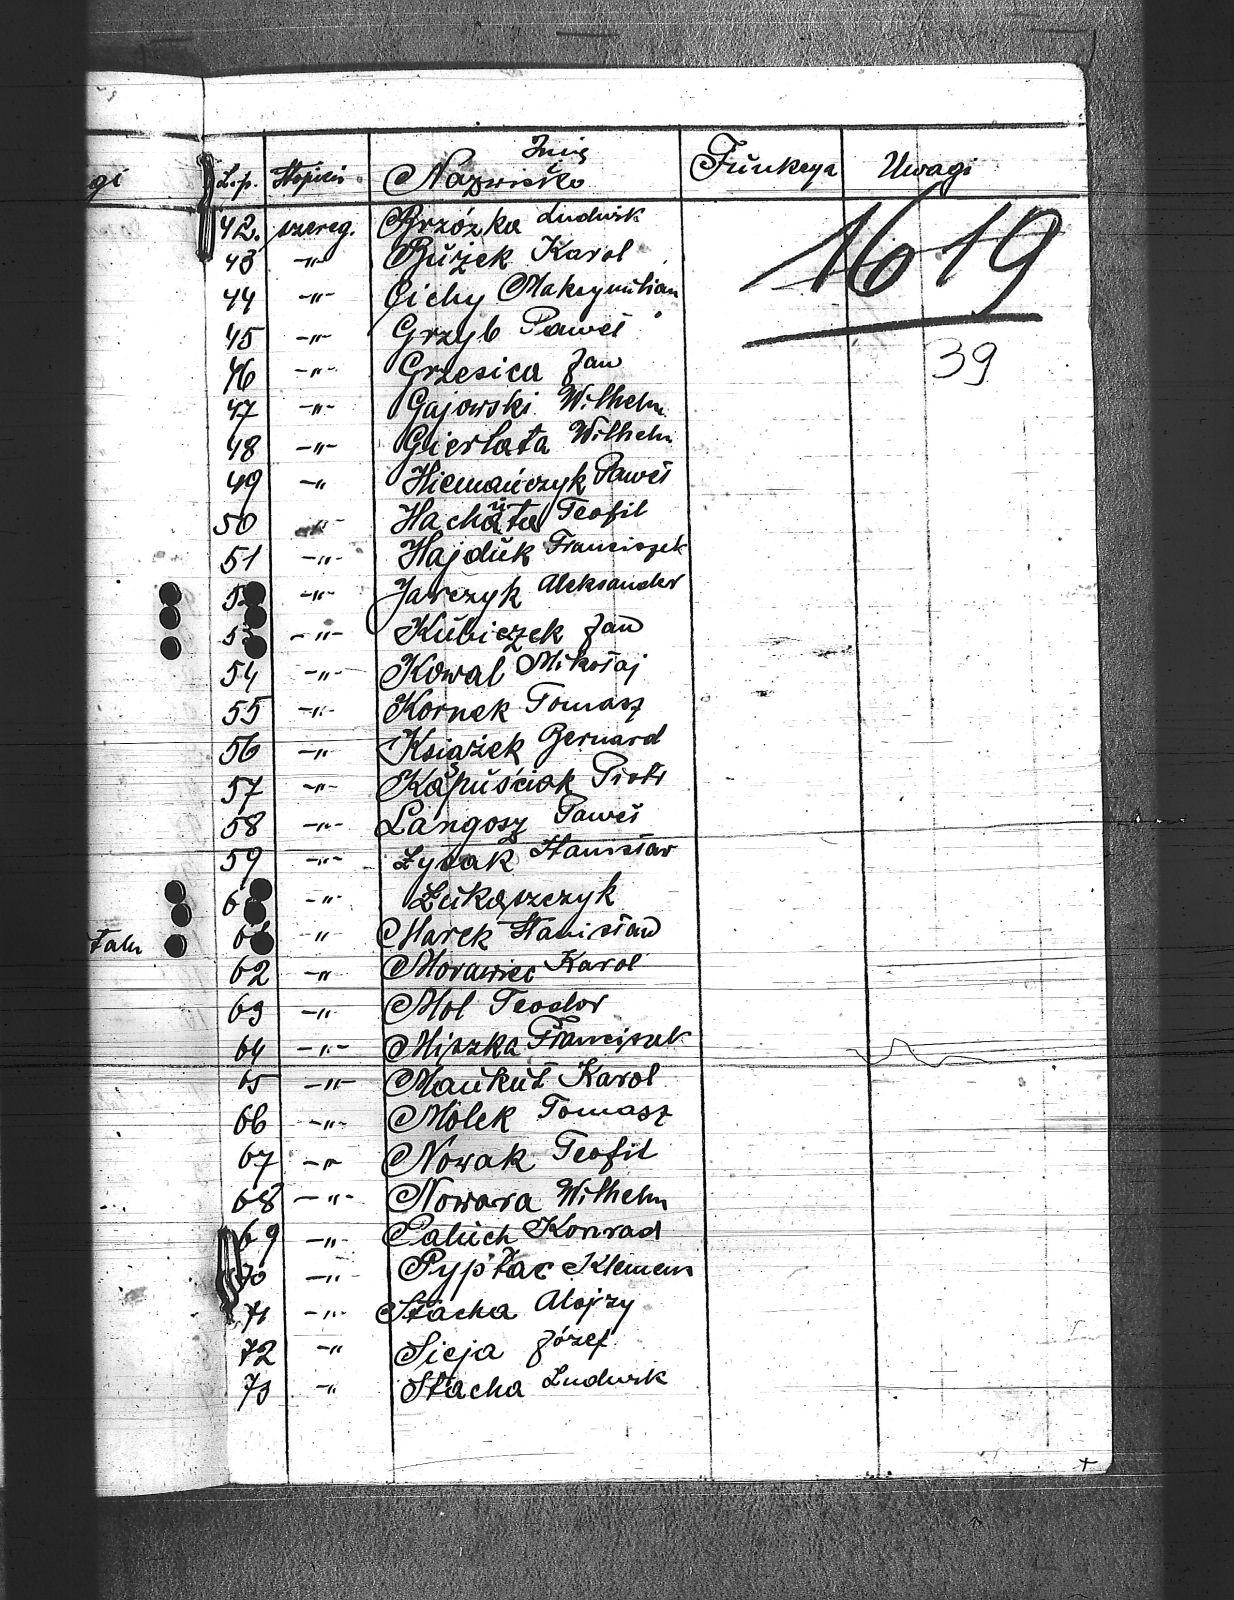 L.p. Stopień Imię Nazwisko Funkcya Uwagi
42. szereg. Brzózka Ludwik
1619
43 -"- Bużek Karol
44 -"- Cichy Maksymilian
45 -"- Grzyb Paweł
39
46 -"- Grzesica Jan
47 -"- Gajowski Wilhelm
48 -"- Gierlata Wilhelm
49 -" Hiemańczyk Paweł
50 -"- Teofil
51 -"- Hajduk Franciszek
-"- Jarczyk Aleksander
-"- Kubiczek Jan
54 -"- Kowal Mikołaj
55 -"- Kornek Tomasz
56 -" Książek Bernard
57 -"- Kapuściok Piotr
58 -"- Langosz Paweł
59 -"- Łysak Stanisław
-"- Łukaszczyk
" Marek Stanisław
62 -" Morawiec Karol
63 -"- Mol Teodor
64 -"- Miszka Franciszek
65 -"- Mańkut Karol
66 -"- Molek Tomasz
67 -"- Nowak Teofil
68 -"- Nowara Wilhelm
69 -"- Paluch Konrad
70 -"- Pypłac Klemens
71 -"- Stacha Alojzy
72 -" Sieja Józef
73 -" Stacha Ludwik